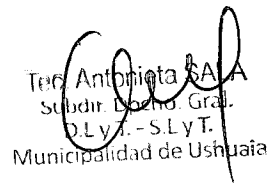 Tec. Antonieta SALA
Subdir. Dpcho. Gral.
D.L y T. - S.L y T.
Municipalidad de Ushuaia